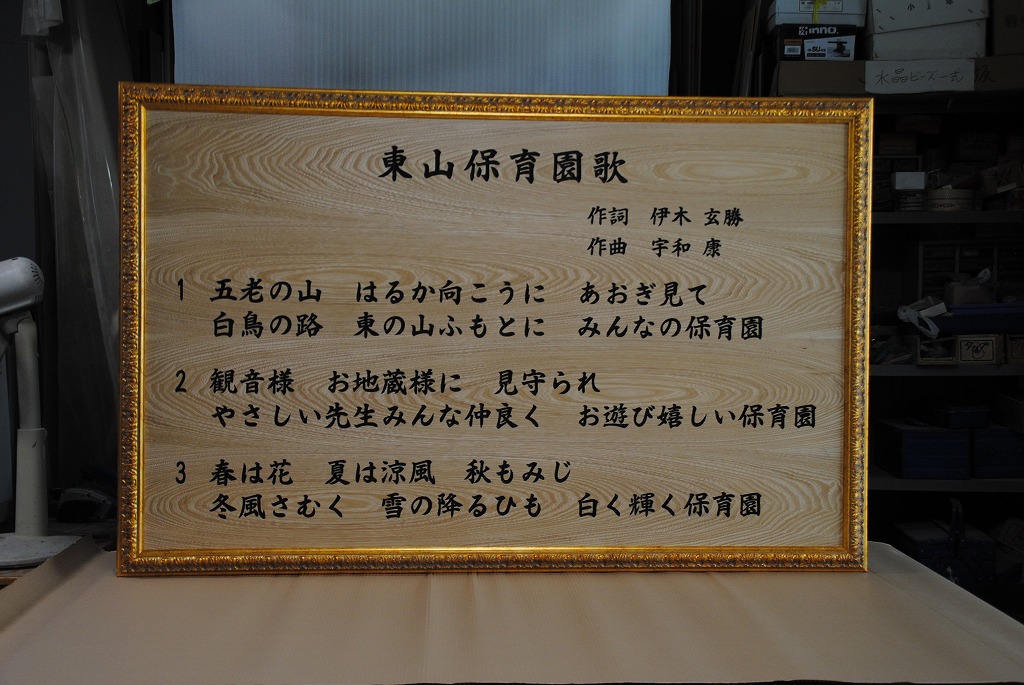 東山保育園歌
作詞　伊木 玄勝
作曲　宇和 康
1 五老の山　はるか向こうに　あおぎ見て
白鳥の路　東の山ふもとに　みんなの保育園
2 観音様　お地蔵様に　見守られ
やさしい先生みんな仲良く　お遊び嬉しい保育園
3 春は花　夏は涼風　秋もみじ
冬風さむく　雪の降るひも　白く輝く保育園
INNO
水晶ビーズ一式